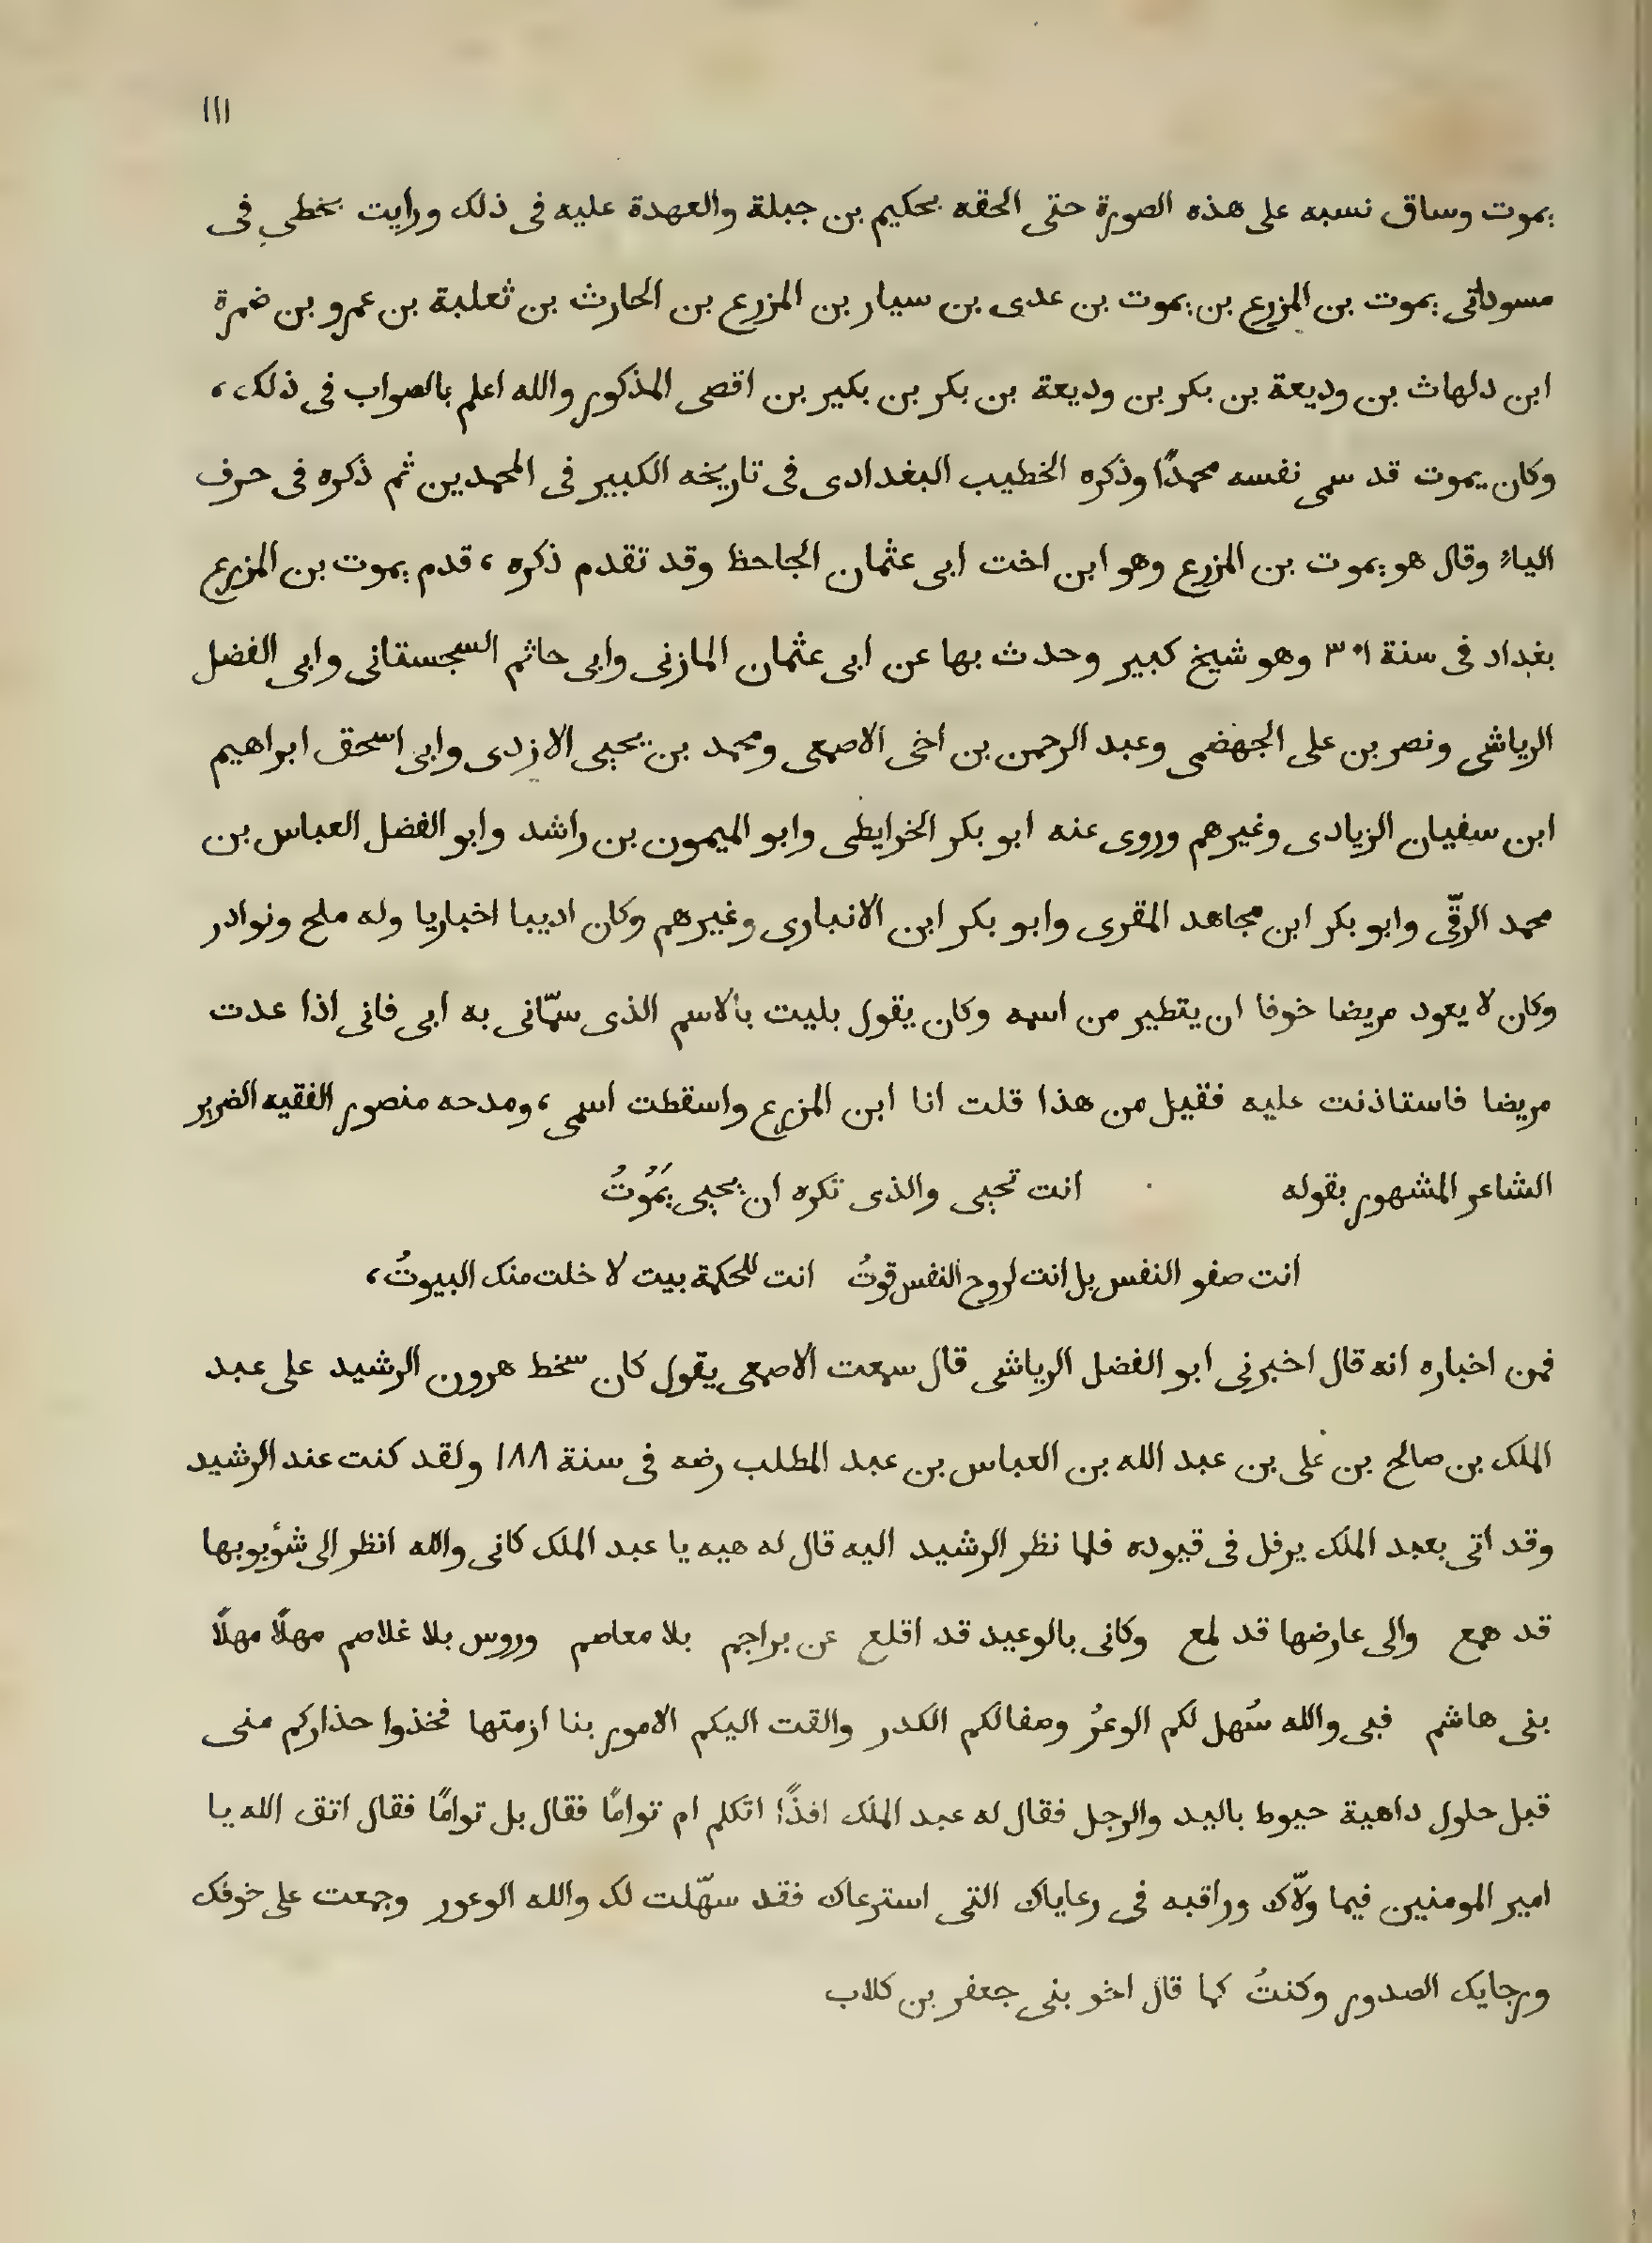 ١١١
يموت وساق نسبه على هذه الصورة حتى الحقه بحكيم بن جبلة والعهدة عليه فى ذلك ورايت بخطى فى
مسوداتى يموت بن المزرع بن يموت بن عدى بن سيار بن المزرع بن الحارث بن ثعلبة بن عمرو بن ضمرة
ابن دلهاث بن وديعة بن بكر بن وديعة بن بكر بن بكير بن اقصى المذكور والله اعلم بالصواب فى ذلك ،
وكان يموت قد سمى نفسه محمدًا وذكره الخطيب البغدادى فى تاريخه الكبير فى المحمدين ثم ذكره فى حرف
الياء وقال هو يموت بن المزرع وهو ابن اخت ابى عثمان الجاحظ وقد تقدم ذكره ، قدم يموت بن المزرع
بغداد فى سنة ٣٠١ وهو شيخ كبير وحدث بها عن ابى عثمان المازنى وابى حاثم السجستانى وابى الفضل
الرياشى ونصر بن على الجهضمى وعبد الرحمن بن اخى الاصمعى ومحمد بن يحيى الازدى وابى اسحق ابراهيم
ابن سفيان الزيادى وغيرهم وروى عنه ابو بكر الخرايطى وابو الميمون بن راشد وابو الفضل العباس بن
محمد الرقّى وابو بكر ابن مجاهد المقرى وابو بكر ابن الانبارى وغيرهم وكان اديبا اخباريا وله ملح ونوادر
وكان لا يعود مريضا خوفا ان يتطير من اسمه وكان يقول بليت بالاسم الذى سمّانى به ابى فانى اذا عدت
مريضا فاستاذنت عليه فقيل من هذا قلت انا ابن المزرع واسقطت اسمى ، ومدحه منصور الفقيه الضرير
الشاعر المشهور بقوله انت تحيى والذى تكره ان يحيى يَمُوتُ
انت صفو النفس بل انت لروح النفس قوتُ انت للحكمة بيت لا خلت منك البيوتُ ،
فمن اخباره انه قال اخبرنى ابو الفضل الرياشى قال سمعت الاصمعى يقول كان سخط هرون الرشيد على عبد
الملك بن صالح بن على بن عبد الله بن العباس بن عبد المطلب رضه فى سنة ١٨٨ ولقد كنت عند الرشيد
وقد اتى بعبد الملك يرفل فى قيوده فلما نظر الرشيد اليه قال له هيه يا عبد الملك كانى والله انظر الى شؤبوبها
قد همع والى عارضها قد لمع وكانى بالوعيد قد اقلع عن براجم بلا معاصم وروس بلا غلاصم مهلًا مهلًا
بنى هاشم فبى والله سُهل لكم الوعرُ وصفا لكم الكدر والقت اليكم الامور بنا ازمتها فخذوا حذاركم منى
قبل حلول داهية حيوط باليد والرجل فقال له عبد الملك افذًا اتكلم ام توامًا فقال بل توامًا فقال اتق الله يا
امير المومنين فيما ولّاك وراقبه فى رعاياك التى استرعاك فقد سهّلت لك والله الوعور وجمعت على خوفك
ورجايك الصدور وكنتُ كما قال اخو بنى جعفر بن كلاب